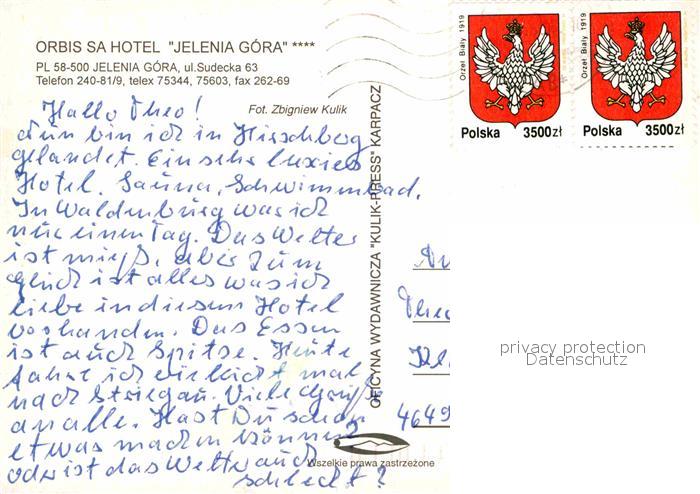 ORBIS SA HOTEL "JELENIA GÓRA" ****
PL 58-500 JELENIA GÓRA, ul.Sudecka 63
Telefon 240-81/9, telex 75344, 75603, fax 262-69
Fot. Zbigniew Kulik
Hallo Theo!
Nun bin ich in Hirschberg
gelandet. Ein sehr luxiös
Hotel. Sauna, Schwimmbad.
In Waldenburg was ich
nur einen Tag. Das Wetter
ist mies, aber zum
Glück ist alles was ich
liebe in diesem Hotel
vorhanden. Das Essen
ist auch Spitze. Heute
fahre ich vielleicht mal
nach Striegau. Viele Grüße
an alle. Hast Du schon
etwas machen können
oder ist das Wetter auch
schlecht?
OFICYNA WYDAWNICZA "KULIK-PRESS" KARPACZ
Wszelkie prawa zastrzeżone
Orzeł Biały 1919
Polska 3500zł
Orzeł Biały 1919
Polska 3500zł
An
Theo
4649
privacy protection
Datenschutz